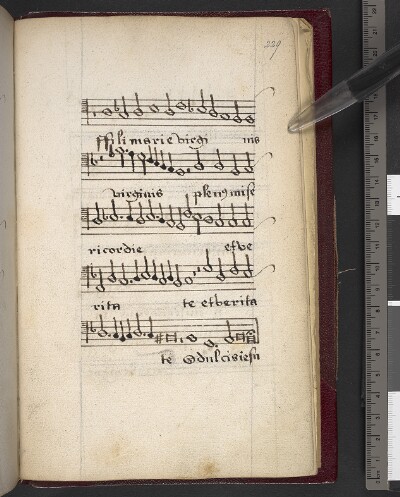 229
fili marie virgi nis
virginis plen9 mise
ricordie et ve
rita te et verita
te O dulcis iesu